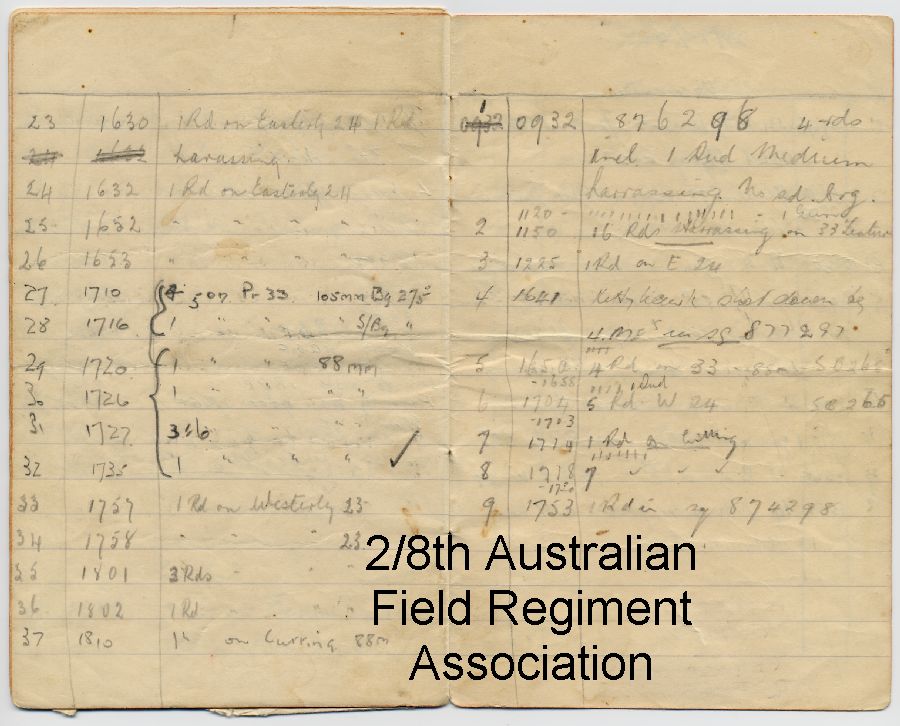 23 1630 1 Rd on Easterly 24 1 Rd
harassing.
24 1632 1 Rd on Easterly 24
25 1652 " " " " "
26 1653 " " " " "
27 1710 5 on Pr 33 105mm Bg 275°
28 1716 1 " " " " S/Bg "
29 1720 1 " " 88 mm
30 1726 1 " " " "
31 1727 3 " "
32 1735 1 " " " ✓
33 1757 1 Rd on Westerly 23
34 1758 " " " 23
35 1801 3 Rds " " "
36 1802 1 Rd " " "
37 1810 1 " on Cutting 88m
1 0932 876298 4 rds
incl 1 Dud Medium
harrassing. No sd. Brg.
1120 - 1 Gun
2 1150 16 Rds Harrassing on 33
3 1225 1 Rd on E 24
4 1641 Kittyhawk shot down by
4 sq 877297
5 1650 4 Rd on 33 - 88m - SB 268°
-1658 1 Dud
6 1704 5 Rd W 24 SB 266
-1713
7 1714 1 Rd on Cutting
8 1718 7 " " "
-1720
9 1753 1 Rd in sq 874298
2/8th Australian
Field Regiment
Association